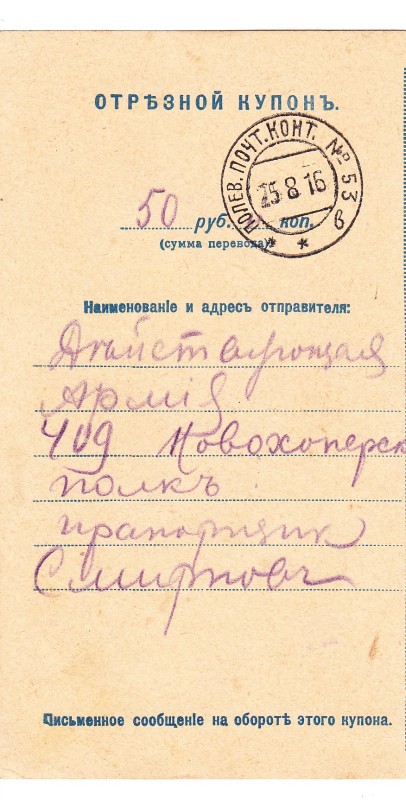 ОТРѢЗНОЙ КУПОНЪ.
ПОЛЕВ. ПОЧТ. КОНТ. № 53
25 8 16
в
50 руб. коп.
(сумма перевода)
Наименованіе и адресъ отправителя:
Дѣйствующая
Армія
409 Новохоперск
полкъ
прапорщик
Смирновъ
Письменное сообщеніе на оборотѣ этого купона.